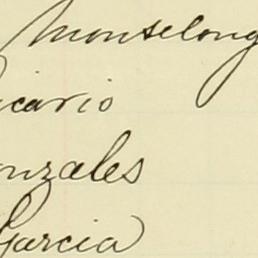 Montelong
icario
onzales
Garcia